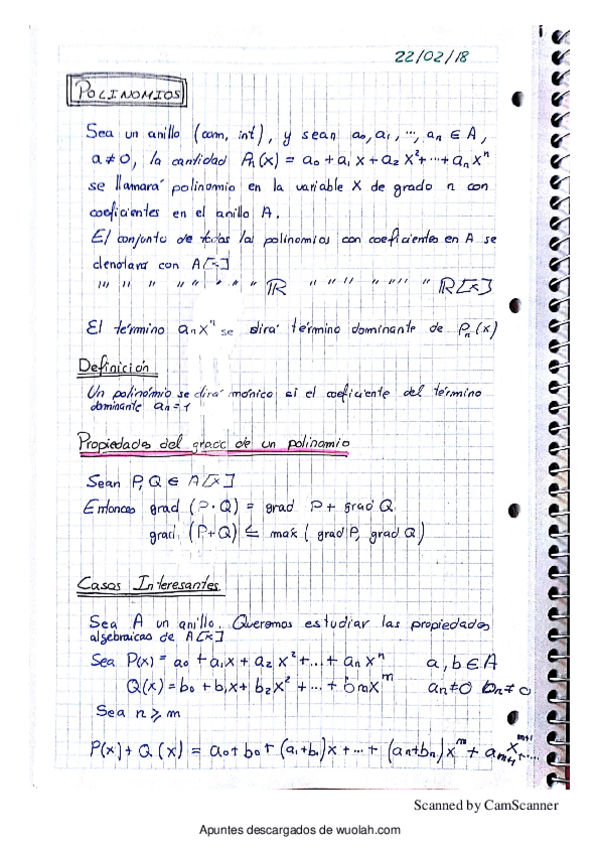 22/02/18
POLINOMIOS
Sea un anillo (com, int), y sean a₀, a₁, ..., aₙ ∈ A,
a ≠ 0, la cantidad Pₙ(x) = a₀ + a₁x + a₂x² + ... + aₙxⁿ
se llamará polinomio en la variable X de grado n con
coeficientes en el anillo A.
El conjunto de todos los polinomios con coeficientes en A se
denotara con A[x]
"" " " " " " " " ℝ " " " " " "" " ℝ[x]
El término aₙxⁿ se dirá término dominante de Pₙ(x)
Definición
Un polinómio se dirá mónico si el coeficiente del término
dominante aₙ = 1
Propiedades del grado de un polinomio
Sean P, Q ∈ A[x]
Entonces grad (P · Q) = grad P + grad Q
grad (P+Q) ≤ max ( grad P, grad Q )
Casos Interesantes
Sea A un anillo. Queremos estudiar las propiedades
algebraicas de A[x]
Sea P(x) = a₀ + a₁x + a₂x² + ... + aₙxⁿ a, b ∈ A
Q(x) = b₀ + b₁x + b₂x² + ... + bₘxᵐ aₙ ≠ 0 bₙ ≠ 0
Sea n ≥ m
P(x) + Q(x) = a₀ + b₀ + (a₁ + b₁)x + ... + (aₙ + bₙ)xᵐ + aₘ₊₁xᵐ⁺¹ + ...
Scanned by CamScanner
Apuntes descargados de wuolah.com